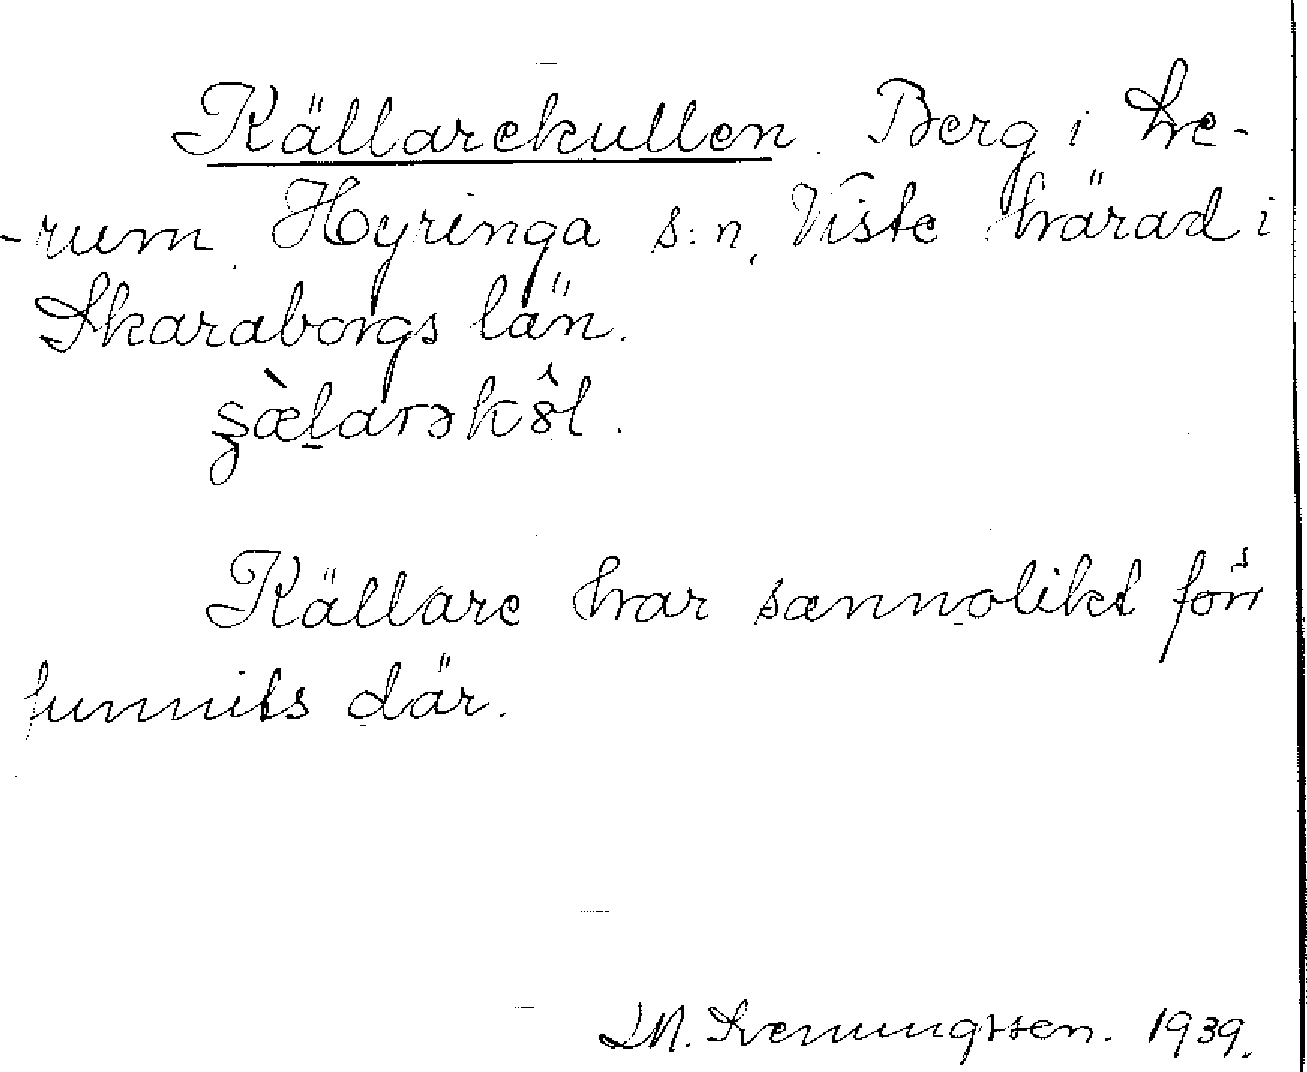 Källarekullen. Berg i Sve-
-rum, Hyringa s:n, Viste härad i
Skaraborgs län.
Källare har sannolikt förr
funnits där.
Svenungsson. 1939.